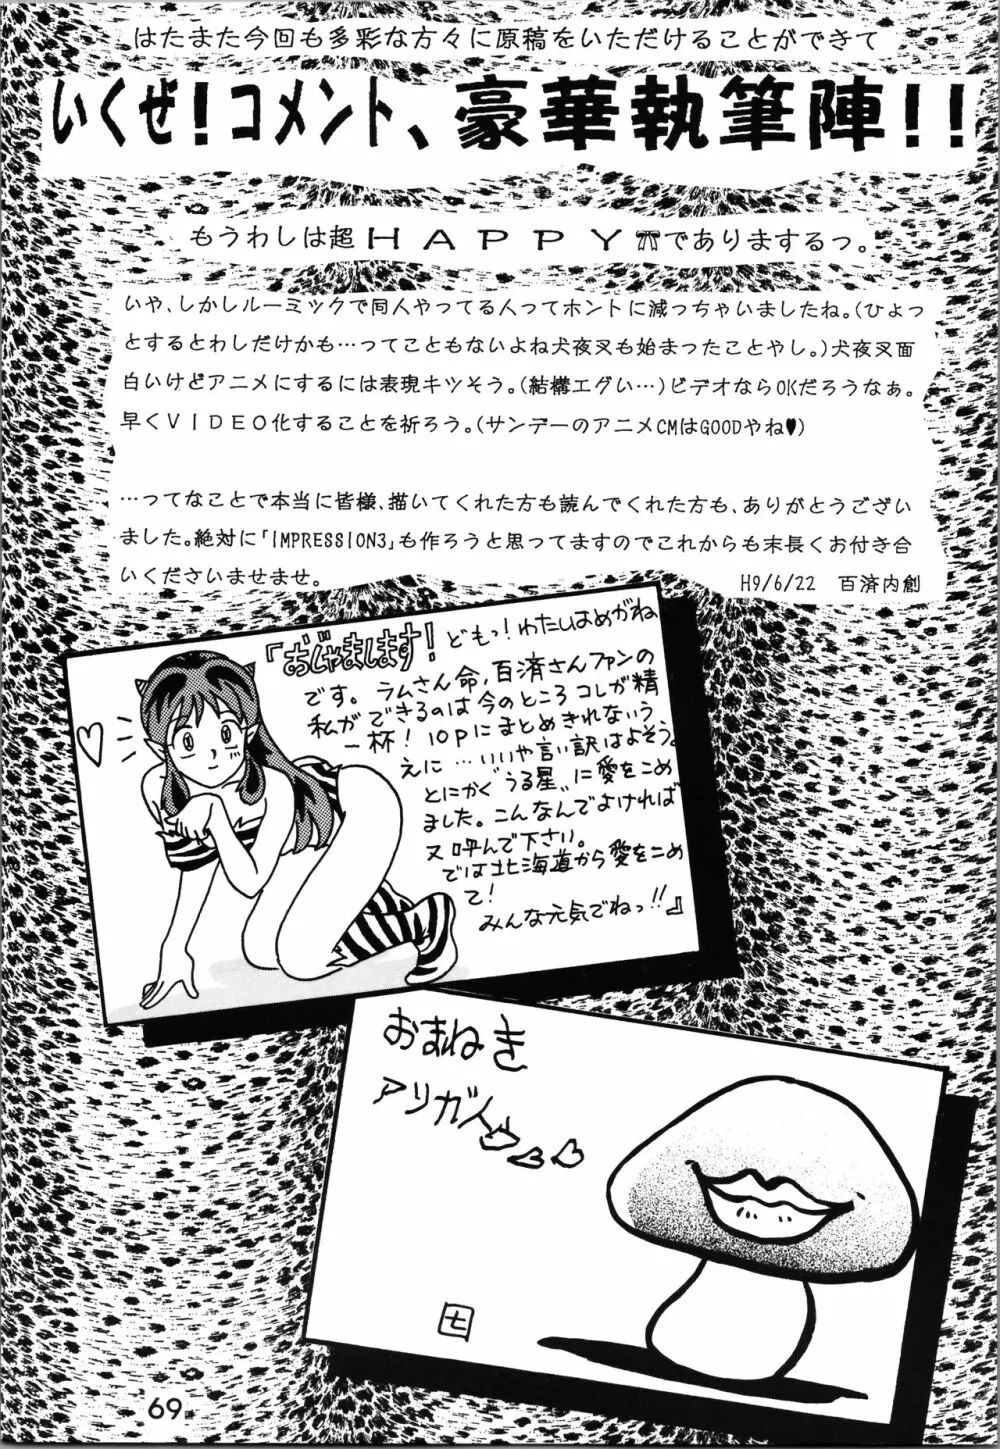 はたまた今回も多彩な方々に原稿をいただけることができて
いくぜ!コメント、豪華執筆陣!!
もうわしは超HAPPYでありまするっ。
いや、しかしルーミックで同人やってる人ってホントに減っちゃいましたね。(ひょっ
とするとわしだけかも…ってこともないよね犬夜叉も始まったことやし。)犬夜叉面
白いけどアニメにするには表現キツそう。(結構エグい…)ビデオならOKだろうなぁ。
早くVIDEO化することを祈ろう。(サンデーのアニメCMはGOODやね♥)
…ってなことで本当に皆様、描いてくれた方も読んでくれた方も、ありがとうござい
ました。絶対に「IMPRESSION3」も作ろうと思ってますのでこれからも末長くお付き合
いくださいませませ。
H9/6/22 百済内創
「おじゃまします!どもっ!わたしはめがね
です。ラムさん命,百済さんファンの
私ができるのは今のところコレが精
一杯!10Pにまとめきれないう
えに…いいや言い訳はよそう。
とにかく“うる星„に愛をこめ
ました。こんなんでよければ
又呼んで下さい。
では北海道から愛をこめ
て!
みんな元気でねっ!!』
おまねき
アリガト
七
69